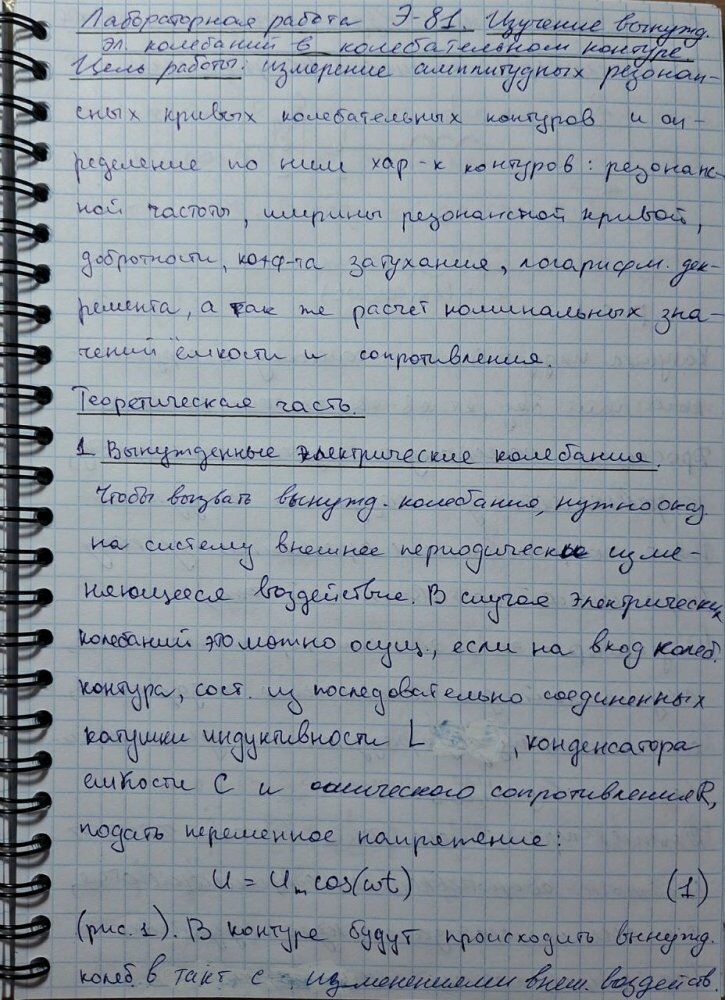 Лабораторная работа Э-81. Изучение вынужд.
эл. колебаний в колебательном контуре.
Цель работы: измерение амплитудных резонан-
сных кривых колебательных контуров и оп-
ределение по ним хар-к контуров: резонанс-
ной частоты, ширины резонансной кривой,
добротности, коэф-та затухания, логарифм. дек-
ремента, а так же расчет номинальных зна-
чений ёмкости и сопротивления.
Теоретическая часть.
1 Вынужденные электрические колебания.
Чтобы вызвать вынужд. колебания, нужно оказ
на систему внешнее периодическое изме-
няющееся воздействие. В случае электрических
колебаний это можно осущ., если на вход колеб.
контура, сост. из последовательно соединенных
катушки индуктивности L , конденсатора
емкости C и омического сопротивления R,
подать переменное напряжение:
U = Um cos(ωt) (1)
(рис. 1). В контуре будут происходить вынужд.
колеб. в такт с изменениями внеш. воздейств.